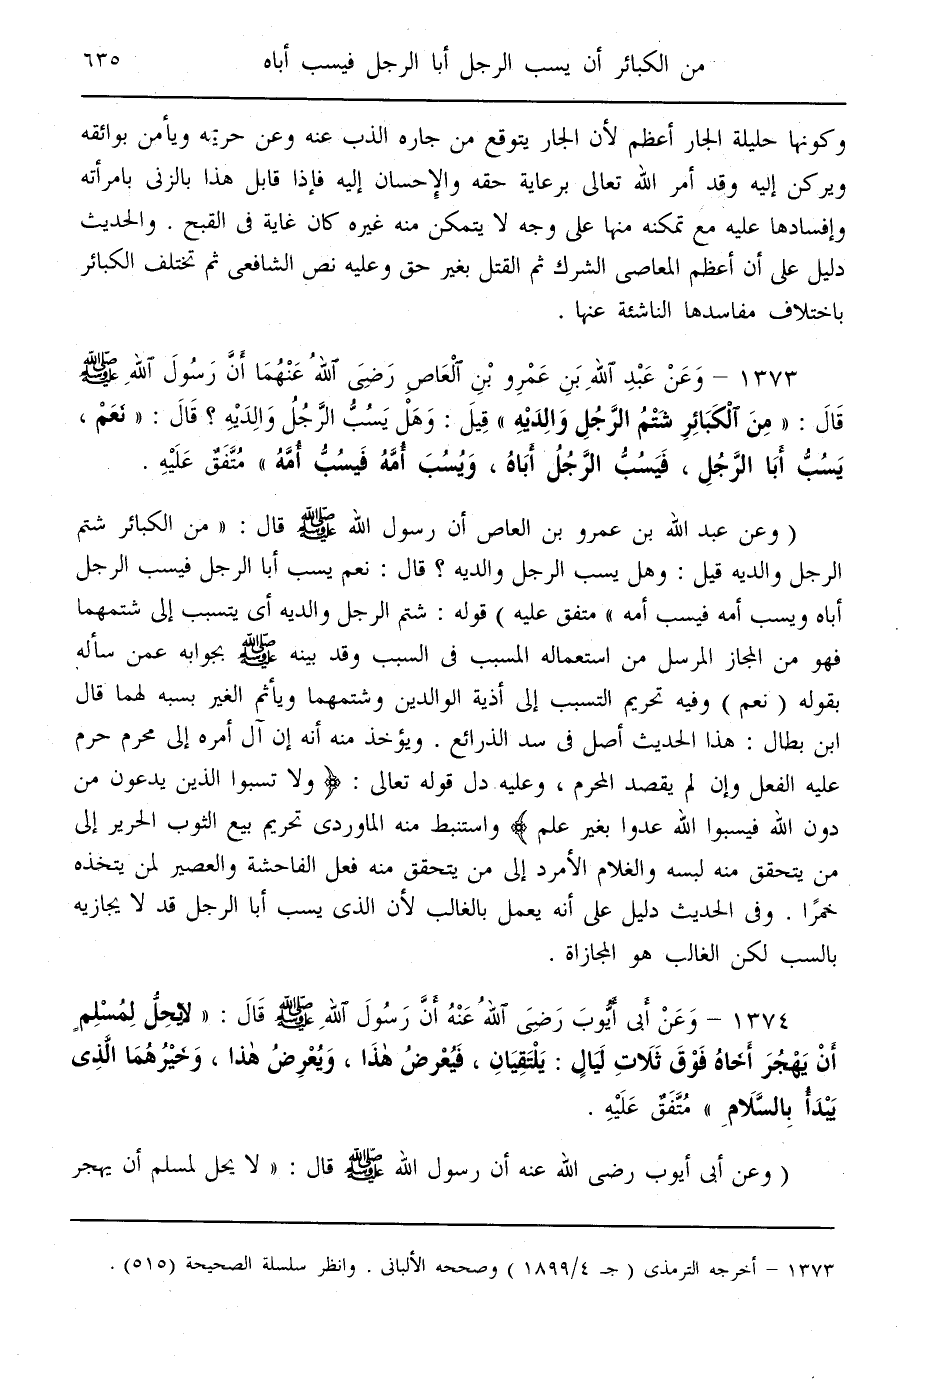 من الكبائر أن يسب الرجل أبا الرجل فيسب أباه ٦٣٥
وكونها حليلة الجار أعظم لأن الجار يتوقع من جاره الذب عنه وعن حريمه ويأمن بوائقه
ويركن إليه وقد أمر الله تعالى برعاية حقه والإحسان إليه فإذا قابل هذا بالزنى بامرأته
وإفسادها عليه مع تمكنه منها على وجه لا يتمكن منه غيره كان غاية فى القبح . والحديث
دليل على أن أعظم المعاصى الشرك ثم القتل بغير حق وعليه نص الشافعى ثم تختلف الكبائر
باختلاف مفاسدها الناشئة عنها .
١٣٧٣ – وَعَنْ عَبْدِ اللهِ بَنِ عَمْرِو بْنِ الْعَاصِ رَضِىَ اللهُ عَنْهُمَا أَنَّ رَسُولَ اللهِ ﷺ
قَالَ : « مِنَ الْكَبَائِرِ شَتْمُ الرَّجُلِ وَالِدَيْهِ » قِيلَ : وَهَلْ يَسُبُّ الرَّجُلُ وَالِدَيْهِ ؟ قَالَ : « نَعَمْ ،
يَسُبُّ أَبَا الرَّجُلِ ، فَيَسُبُّ الرَّجُلُ أَبَاهُ ، وَيُسُبَ أُمَّهُ فَيَسُبُّ أُمَّهُ » مُتَّفَقٌ عَلَيْهِ .
( وعن عبد الله بن عمرو بن العاص أن رسول الله ﷺ قال : « من الكبائر شتم
الرجل والديه قيل : وهل يسب الرجل والديه ؟ قال : نعم يسب أبا الرجل فيسب الرجل
أباه ويسب أمه فيسب أمه » متفق عليه ) قوله : شتم الرجل والديه أى يتسبب إلى شتمهما
فهو من المجاز المرسل من استعماله المسبب فى السبب وقد بينه ﷺ بجوابه عمن سأله
بقوله ( نعم ) وفيه تحريم التسبب إلى أذية الوالدين وشتمهما ويأثم الغير بسبه لهما قال
ابن بطال : هذا الحديث أصل فى سد الذرائع . ويؤخذ منه أنه إن آل أمره إلى محرم حرم
عليه الفعل وإن لم يقصد المحرم ، وعليه دل قوله تعالى : ﴿ ولا تسبوا الذين يدعون من
دون الله فيسبوا الله عدوا بغير علم ﴾ واستنبط منه الماوردى تحريم بيع الثوب الحرير إلى
من يتحقق منه لبسه والغلام الأمرد إلى من يتحقق منه فعل الفاحشة والعصير لمن يتخذه
خمرًا . وفى الحديث دليل على أنه يعمل بالغالب لأن الذى يسب أبا الرجل قد لا يجازيه
بالسب لكن الغالب هو المجازاة .
١٣٧٤ – وَعَنْ أَبى أَيُّوبَ رَضِىَ اللهُ عَنْهُ أَنَّ رَسُولَ اللهِ ﷺ قَالَ : « لايَحِلُّ لِمُسْلِمٍ
أَنْ يَهْجُرَ أَخَاهُ فَوْقَ ثَلَاثِ لَيَالٍ : يَلْتَقِيَانِ ، فَيُعْرِضُ هٰذَا ، وَيُعْرِضُ هٰذا ، وَخَيْرُهُمَا الَّذِى
يَبْدَأُ بِالسَّلَامِ » مُتَّفَقٌ عَلَيْهِ .
( وعن أبى أيوب رضى الله عنه أن رسول الله ﷺ قال : « لا يحل لمسلم أن يهجر
١٣٧٣ – أخرجه الترمذى ( جـ ٤/١٨٩٩ ) وصححه الألبانى . وانظر سلسلة الصحيحة (٥١٥) .